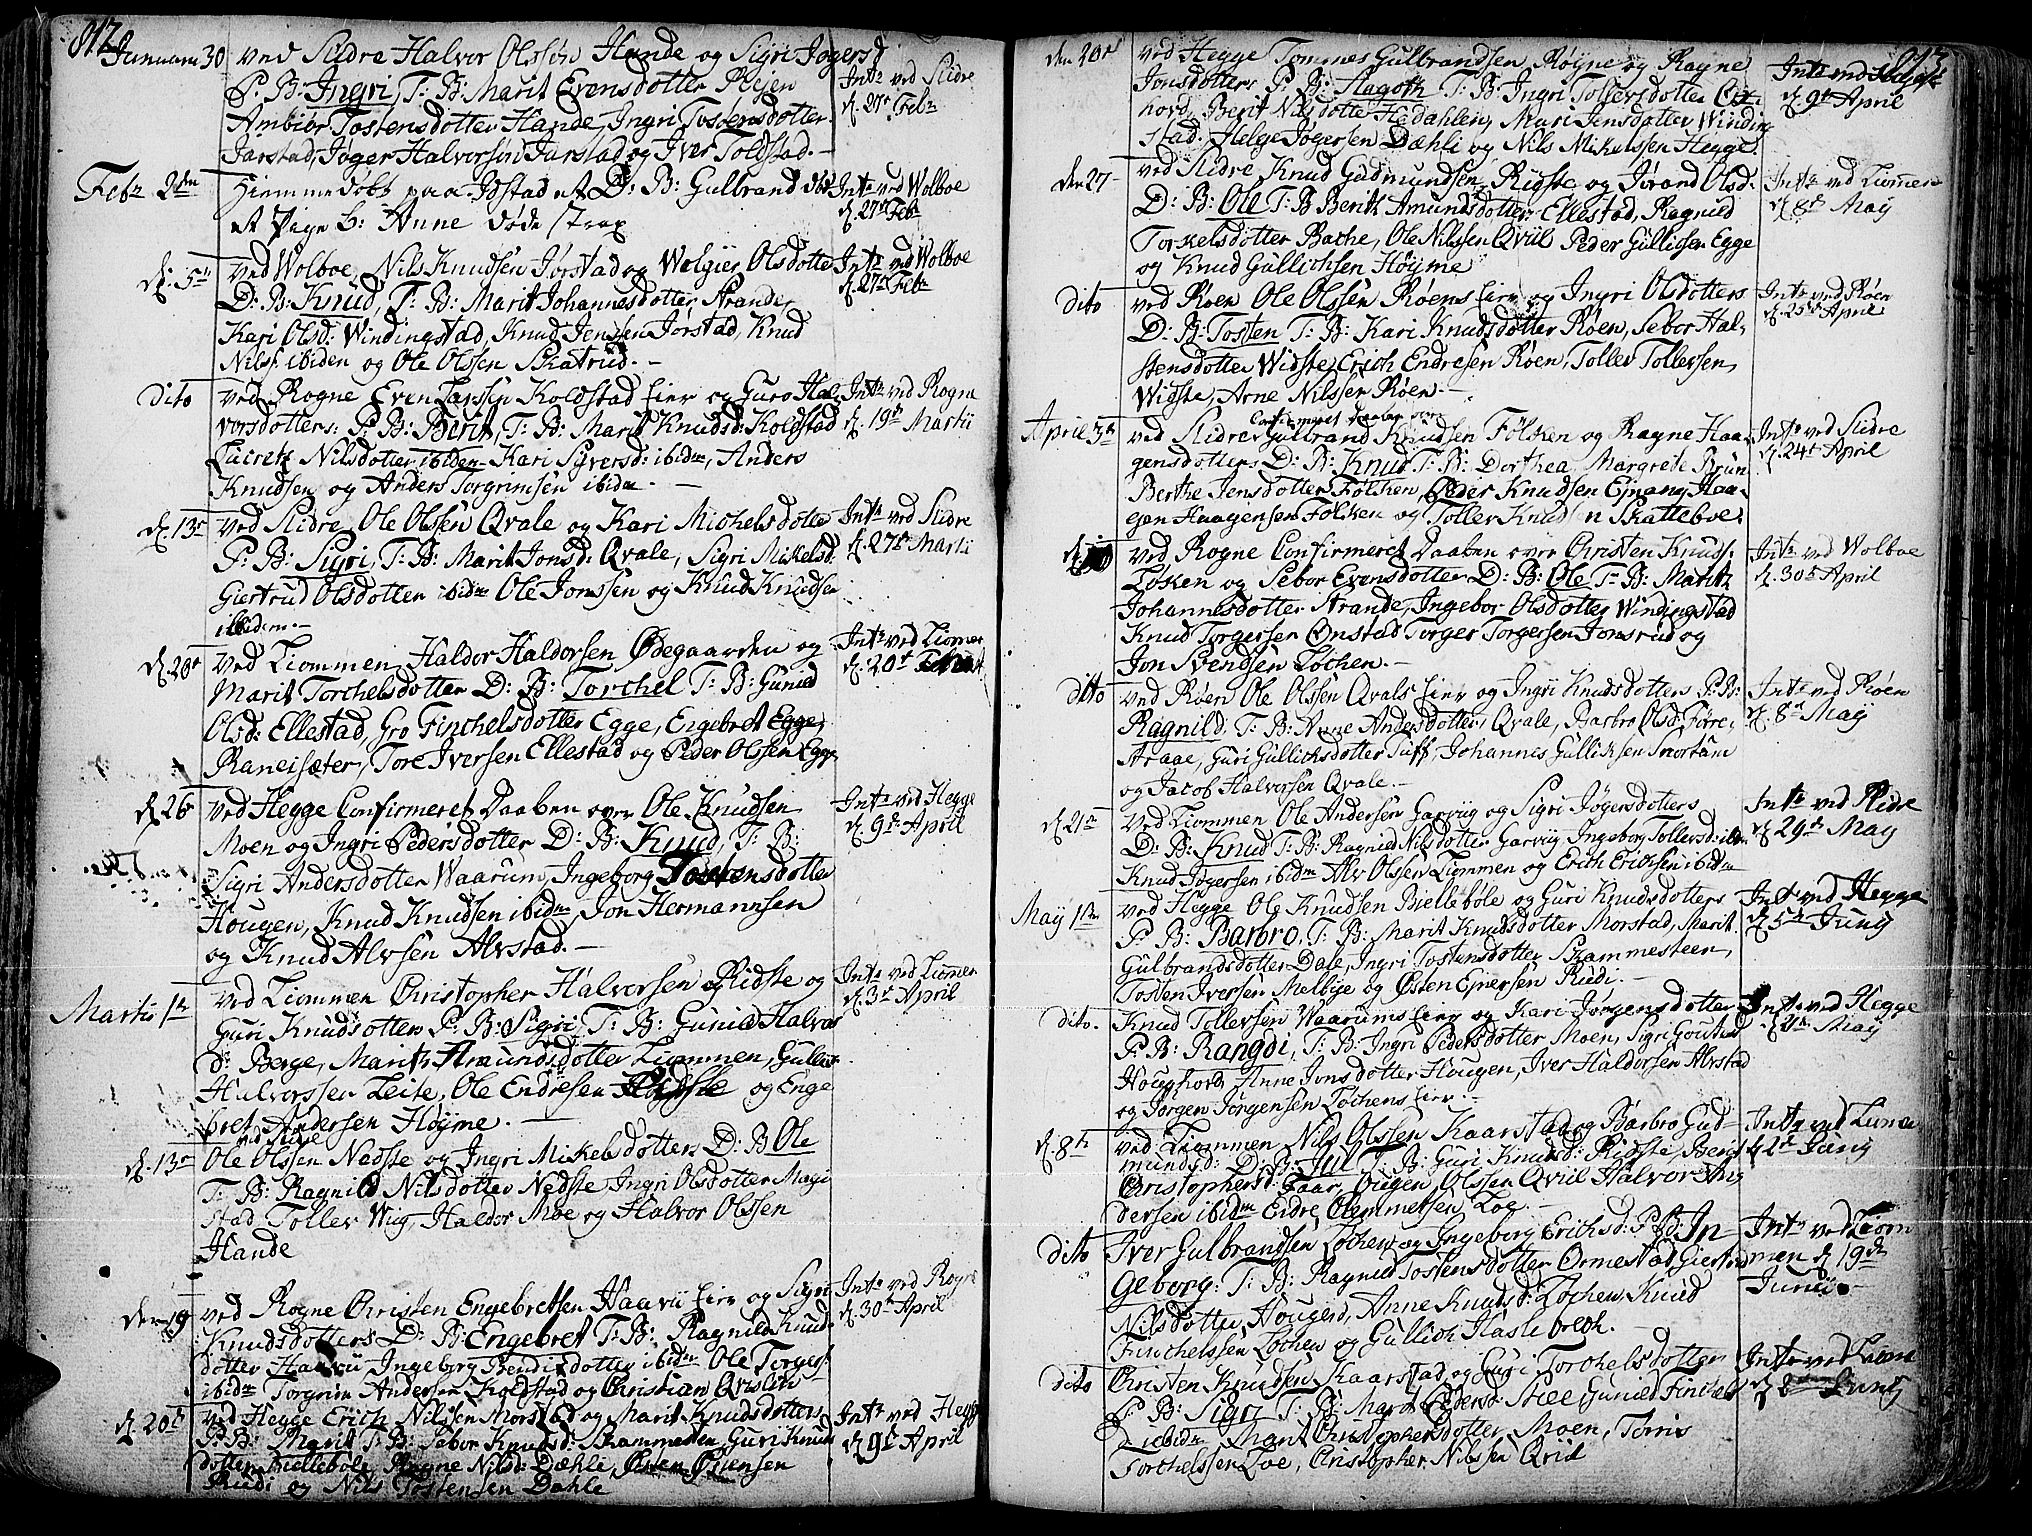 812
Januarii 30 ved Slidre Halvor Olssön Hande og Sigri Jøgersd
P: B: Ingri, T: B: Marit Evensdotter
Ambiör Tostensdotter Hande, Ingri Tostensdotter
Jarstad, Jøger Halvorsøn Jarstad og Iver Toldstad.
Intr: ved Slidre
d. 27de Febr
Febr 2den Hiemme døbt paa Ødstad et D: B: Gulbrand
et Pige b: Anne døde strax
Intr ved Wolboe
d. 27de Febr
d: 5te ved Wolboe, Nils Knudsen Jørstad og Wølgier Olsdotte
D: B: Knud, T: B: Marit Johannesdotter Strande
Kari Olsd: Windingstad, Knud Jensen Jørstad, Knud
Nilss: ibiden og Ole Olssen Skatrud. —
Intr ved Wolboe
d. 27de Febr
dito ved Rogne Even Larssen Koldstad Eier og Guro Hal-
vorsdotters: P: B: Berit, T: B: Marit Knudsd: Koldstad
Lucretz Nilsdotter ibiden Kari Syversd: ibidm, Anders
Knudsen og Anders Torgrimsen ibidm. —
Intr: ved Rogne
d. 19de Martii
d. 13de ved Slidre Ole Olssen Qvale og Kari Michelsdotte
P: B: Sigri, T: B: Marit Jonsd: Qvale, Sigri Mikelsd.
Giertrud Olsdotter ibidm Ole Jonssen og Knud Knudsen
ibidem. —
Intr: ved Slidre
d. 27de Martii
d. 20de ved Liommen Haldor Haldorsen Ødegaarden og
Marit Torchelsdotter D: B: Torchel T: B: Gunild
Olsd: Ellestad, Gro Finchelsdotter Egge, Engebret Egge,
Raneisæter, Tore Iversen Ellestad og Peder Olssen Egge
Intr: ved Liomen
d. 20de
d. 26 ved Hegge Confirmeret Daaben over Ole Knudsen
Moen og Ingri Pedersdotter D: B: Knud, T: B:
Sigri Andersdotter Waarum, Ingeborg Tostensdotter
Hougen, Knud Knudsen ibidm Jon Hermannsen
og Knud Alvsen Alvstad. —
Intr: ved Hegge
d. 9de April
Martii 1te ved Liommen Christopher Halvorsen Ridste og
Guri Knudsdotter P: B: Sigri, T: B: Gunild Halvors
d: Berge, Marith Amundsdotter Liommen, Gullek
Halvorssen Leite, Ole Endresen Ridste og Enge
bret Andersen Høyme. —
Intr: ved Liomen
d. 3de April
ved Slidre
d. 13de Ole Olssen Nedste og Ingri Mikelsdotters D: B Ole
T: B: Ragnild Nilsdotter Nedste, Ingri Olsdotter Magi
stad Toller Wiig, Haldor Moe og Halvor Olssen
Hande
den 19 ved Rogne Christen Engebretsen Haavii Eier og Sigri
Knudsdotters D: B: Engebret T: B: Ragnild Knud
dotter Haavii Ingeborg Bendixdotter ibidm Ole Torgerss:
ibidm Torgrim Andersen Koldstad og Christian Qvislin
Intr ved Rogne
d. 30te April
d. 20de ved Hegge Erich Nilssen Morstad og Marit Knudsdotters
P: B: Marit T: B: Sebor Knudsd: Skammesten Guri Knud
dotter Biellebole, Ragne Nilsd: Dæhle, Østen
Rudi og Nils Tostensen Dahle
Intr ved Hegge
d. 9de April
813
den 20de ved Hegge Tommes Gulbrandsen Røgne og Ragne
Jonsdotters P: B: Aagoth T: B: Ingri Tollersdotter
nord, Berit Nilsdotte Hedahlen, Mari Jensdotter Winding
stad, Helge Jøgersen Dæhli og Nils Mikelssen Hegge.
Intr: ved Hegge
d. 9de April
den 27 ved Slidre Knud Gudmundsen Ridste og Jørand Olsd:
D: B: Ole T: B Berith Amundsdotter Ellestad, Ragnild
Torkelsdotter Bache, Ole Nilssen Qviil Peder Gullicksen Egge
og Knud Gullichsen Høyme
Intr: ved Liomen
d. 8de May
dito ved Røen Ole Olssen Røens Eier og Ingri Olsdotters
D: B: Tosten T: B: Kari Knudsdotter Røen, Sebor Hal-
stensdotter Widste, Erich Endresen Røen, Toller Tollefsen
Widste, Arne Nilssen Røen. —
Intr: ved Røen
d. 25de April
Confirmeret Daaben over
April 3de ved Slidre Gulbrand Knudsen Følsken og Ragne Haa-
gensdotters D: B: Knud T: B: Dorthea Margrete Brun
Berthe Jensdotter Følsken, Peder Knudsen Ejnang, Haa-
gen Haagensen Følsken og Toller Knudsen Skatteboe.
Intr: ved Slidre
d. 24de April
ved Rogne Confirmeret Daaben over Christen Knuds.
Løken og Sebor Evensdotter D: B: Ole T: B: Marit
Johannesdotter Strande, Ingebor Olsdotter Windingstad
Knud Torgersen Onstad Torger Torgersen Jonsrud og
Jon Svendsen Løchen. —
Intr: ved Wolboe
d. 30te April
dito ved Røen Ole Olssen Qvals Eier og Ingri Knudsdotters P: B:
Ragnild, T: B: Anne Andersdotter Qvale, Barbro Olsd: Førre-
Araae, Guri Gullichsdotter Tuff, Johannes Gullicksen Snortum
og Jacob Halvorsen Qvale. —
Intr: ved Røen
d. 8de May
d. 21de ved Liommen Ole Andersen Garviig og Sigri Jøgersdotters
D: B: Knud T: B: Ragnild Nilsdotter Garviig, Ingeborg Tollersd: ibm
Knud Jøgersen ibidm Alv Olssen Liommen og Erich Erichsen ibidm
Intr ved Slidre
d. 29de May
May 1te ved Hegge Ole Knudsen Biellebole og Guri Knudsdotters
P: B: Barbro. T: B: Marit Knudsdotter Morstad, Marit
Gulbrandsdotter Dale, Ingri Tostensdotter Skammesteen,
Tosten Iversen Melbye og Østen Ejnersen Rudi. —
Intr ved Hegge
d. 5te Junij
dito. Knud Tollevsen Waarums Eier og Kari Jørgensdotter
P: B: Rangdi, T: B: Ingri Pedersdotter Moen, Sigri
Anne Jonsdotter Hougen, Iver Haldorsen Alvstad
og Jørgen Jørgensen Løchens Eier. —
Intr: ved Hegge
d. May
d. 8de ved Liommen Nils Olssen Kaarstad og Barbro Gud-
mundsd: D: B: Jul T: B: Guri Knudsd: Ridste, Berit
Christophersd: Faar, Ougen Olssen Qviil Halvor An
dersen ibidm Endre Clemmetsen Loe. —
Intr ved Liom
d. 2de Junij
dito Iver Gulbrandsen Løchen og Ingeborg Erichsd: P: B: In
Geborg: T: B: Ragnild Tostensdotter Ormestad Giertrud
Nilsdotter Hougerd, Anne Knudsd: Løchen Knud
Finchelssen Løchen og Gullich Haslebrech. —
Intr ved Liom
men d. 19de
Junii. —
dito Christen Knudsen Kaarstad og Guri Torchelsdotter
P: B: Sigri T: B: Marit Pedersd: Stee Gunild Finchels
D: ibidm Marit Christophersdotter Moen, Torris
Torchelssen Loe, Christopher Nilssen Qviil
Intr ved Liom